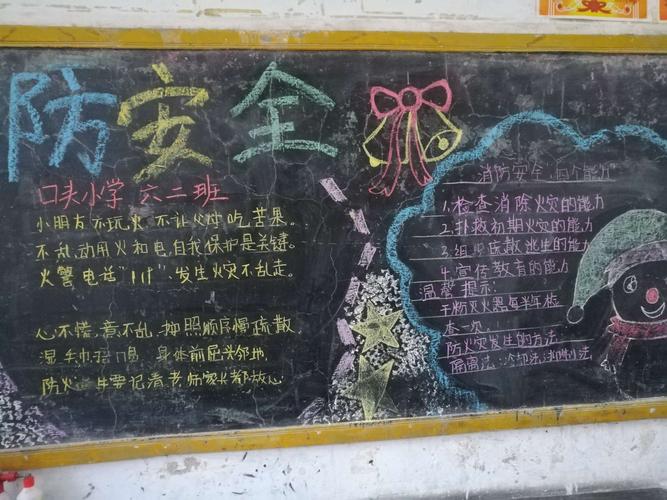 防安全
口头小学 六二班
小朋友 不玩火 不让火灾吃苦果。
不乱动用火和电,自我保护是关键。
火警电话"119",发生火灾不乱走。
心不慌,意不乱,按照顺序慢疏散,
湿毛巾捂口鼻,身体前屈头邻地,
防火 牢要记清 老师家长都放心
消防安全"四个能力"
1.检查消除火灾的能力
2.扑救初期火灾的能力
3.组织疏散逃生的能力
4.宣传教育的能力
温馨提示:
干粉灭火器每半年检
查一次
防火灾发生的方法
隔离法、冷却法